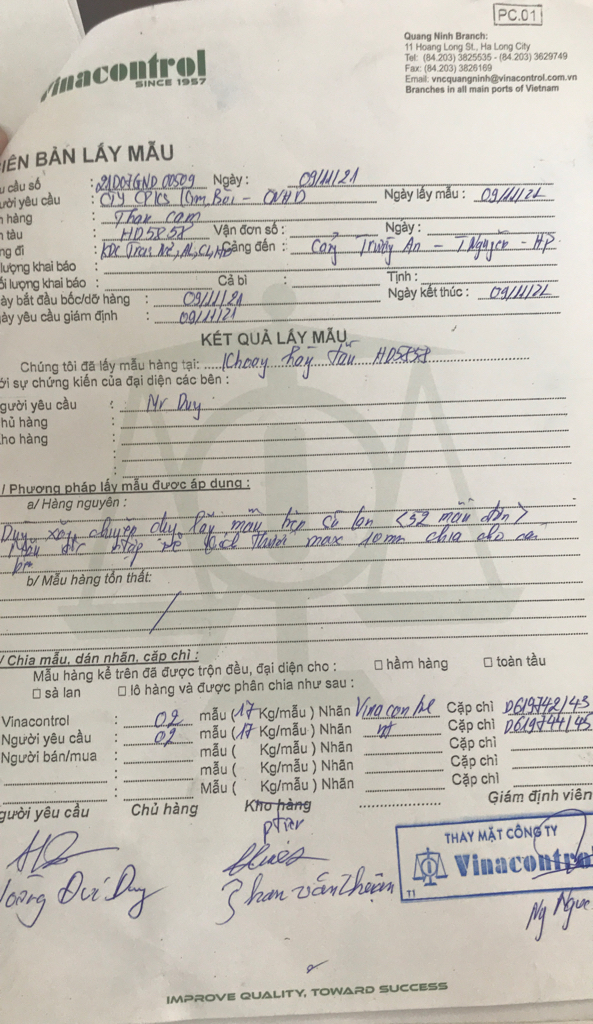 PC.01
Vinacontrol
SINCE 1957
Quang Ninh Branch:
11 Hoang Long St., Ha Long City
Tel: (84.203) 3825535 - (84.203) 3629749
Fax: (84.203) 3826169
Email: vncquangninh@vinacontrol.com.vn
Branches in all main ports of Vietnam
IÊN BẢN LẤY MẪU
u cầu số : 21D07GND 00509 Ngày : 09/11/21
ười yêu cầu : Ngày lấy mẫu : 09/11/21
n hàng : Than cám
n tàu : HD5858 Vận đơn số : Ngày :
ng đi : Cảng đến : Cảng Trường An - TNguyên - HP
lượng khai báo : Cả bì : Tịnh :
ối lượng khai báo :
ày bắt đầu bốc/dỡ hàng : 09/11/21 Ngày kết thúc : 09/11/21
gày yêu cầu giám định : 09/11/21
KẾT QUẢ LẤY MẪU
Chúng tôi đã lấy mẫu hàng tại: Khoang hầm tàu HD5858
ới sự chứng kiến của đại diện các bên :
gười yêu cầu : Mr Duy
hủ hàng :
ho hàng :
/ Phương pháp lấy mẫu được áp dụng :
a/ Hàng nguyên :
lấy mẫu <52 mẫu đơn>
max 10mm chia cho các
bên
b/ Mẫu hàng tổn thất:
/ Chia mẫu, dán nhãn, cặp chì :
Mẫu hàng kể trên đã được trộn đều, đại diện cho : □ hầm hàng □ toàn tàu
□ sà lan □ lô hàng và được phân chia như sau :
Vinacontrol : 02 mẫu ( 17 Kg/mẫu ) Nhãn Cặp chì D619742/43
Người yêu cầu : 02 mẫu ( 17 Kg/mẫu ) Nhãn nt Cặp chì D619744/45
Người bán/mua : mẫu ( Kg/mẫu ) Nhãn Cặp chì
: mẫu ( Kg/mẫu ) Nhãn Cặp chì
: Mẫu ( Kg/mẫu ) Nhãn Cặp chì
gười yêu cầu Chủ hàng Kho hàng Giám định viên
THAY MẶT CÔNG TY
Vinacontrol
T1
Đức Duy
Phan văn Thuận
Ng Ngọc
IMPROVE QUALITY, TOWARD SUCCESS